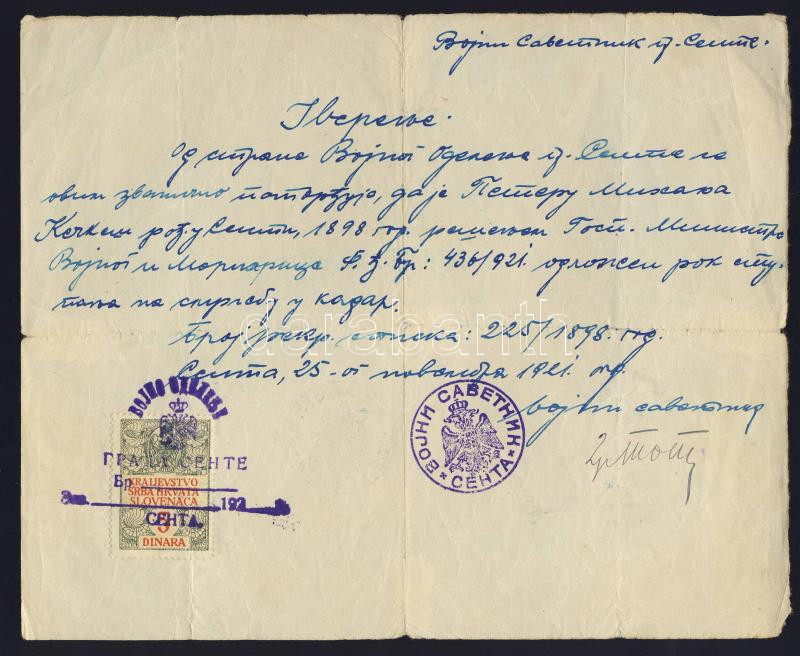 Војни Саветник гр. Сенте.
Уверење.
Од стране Војног Одељења гр. Сенте се
овим званично потврђује, да је Петеру Михаља
Кечкеш рођ. у Сенти, 1898 год. решењем Госп. Министра
Војног и Морнарице Ф. Ђ. Бр: 436/921. одложен рок сту-
пања на службу у кадар.
Број рекр. списка: 225/1898. год.
Сента, 25-ог новембра 1921. год.
Војни саветник
ВОЈНО ОДЕЛЕЊЕ
ГРАДА СЕНТЕ
Бр.
192
СЕНТА.
KRALJEVSTVO
SRBA HRVATA
SLOVENACA
5
DINARA
ВОЈНИ САВЕТНИК
СЕНТА
darabanth